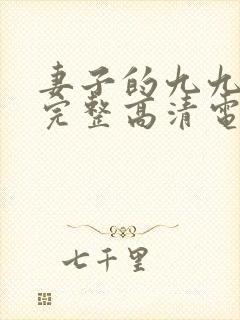 妻子的九九
完整高清電
七千里